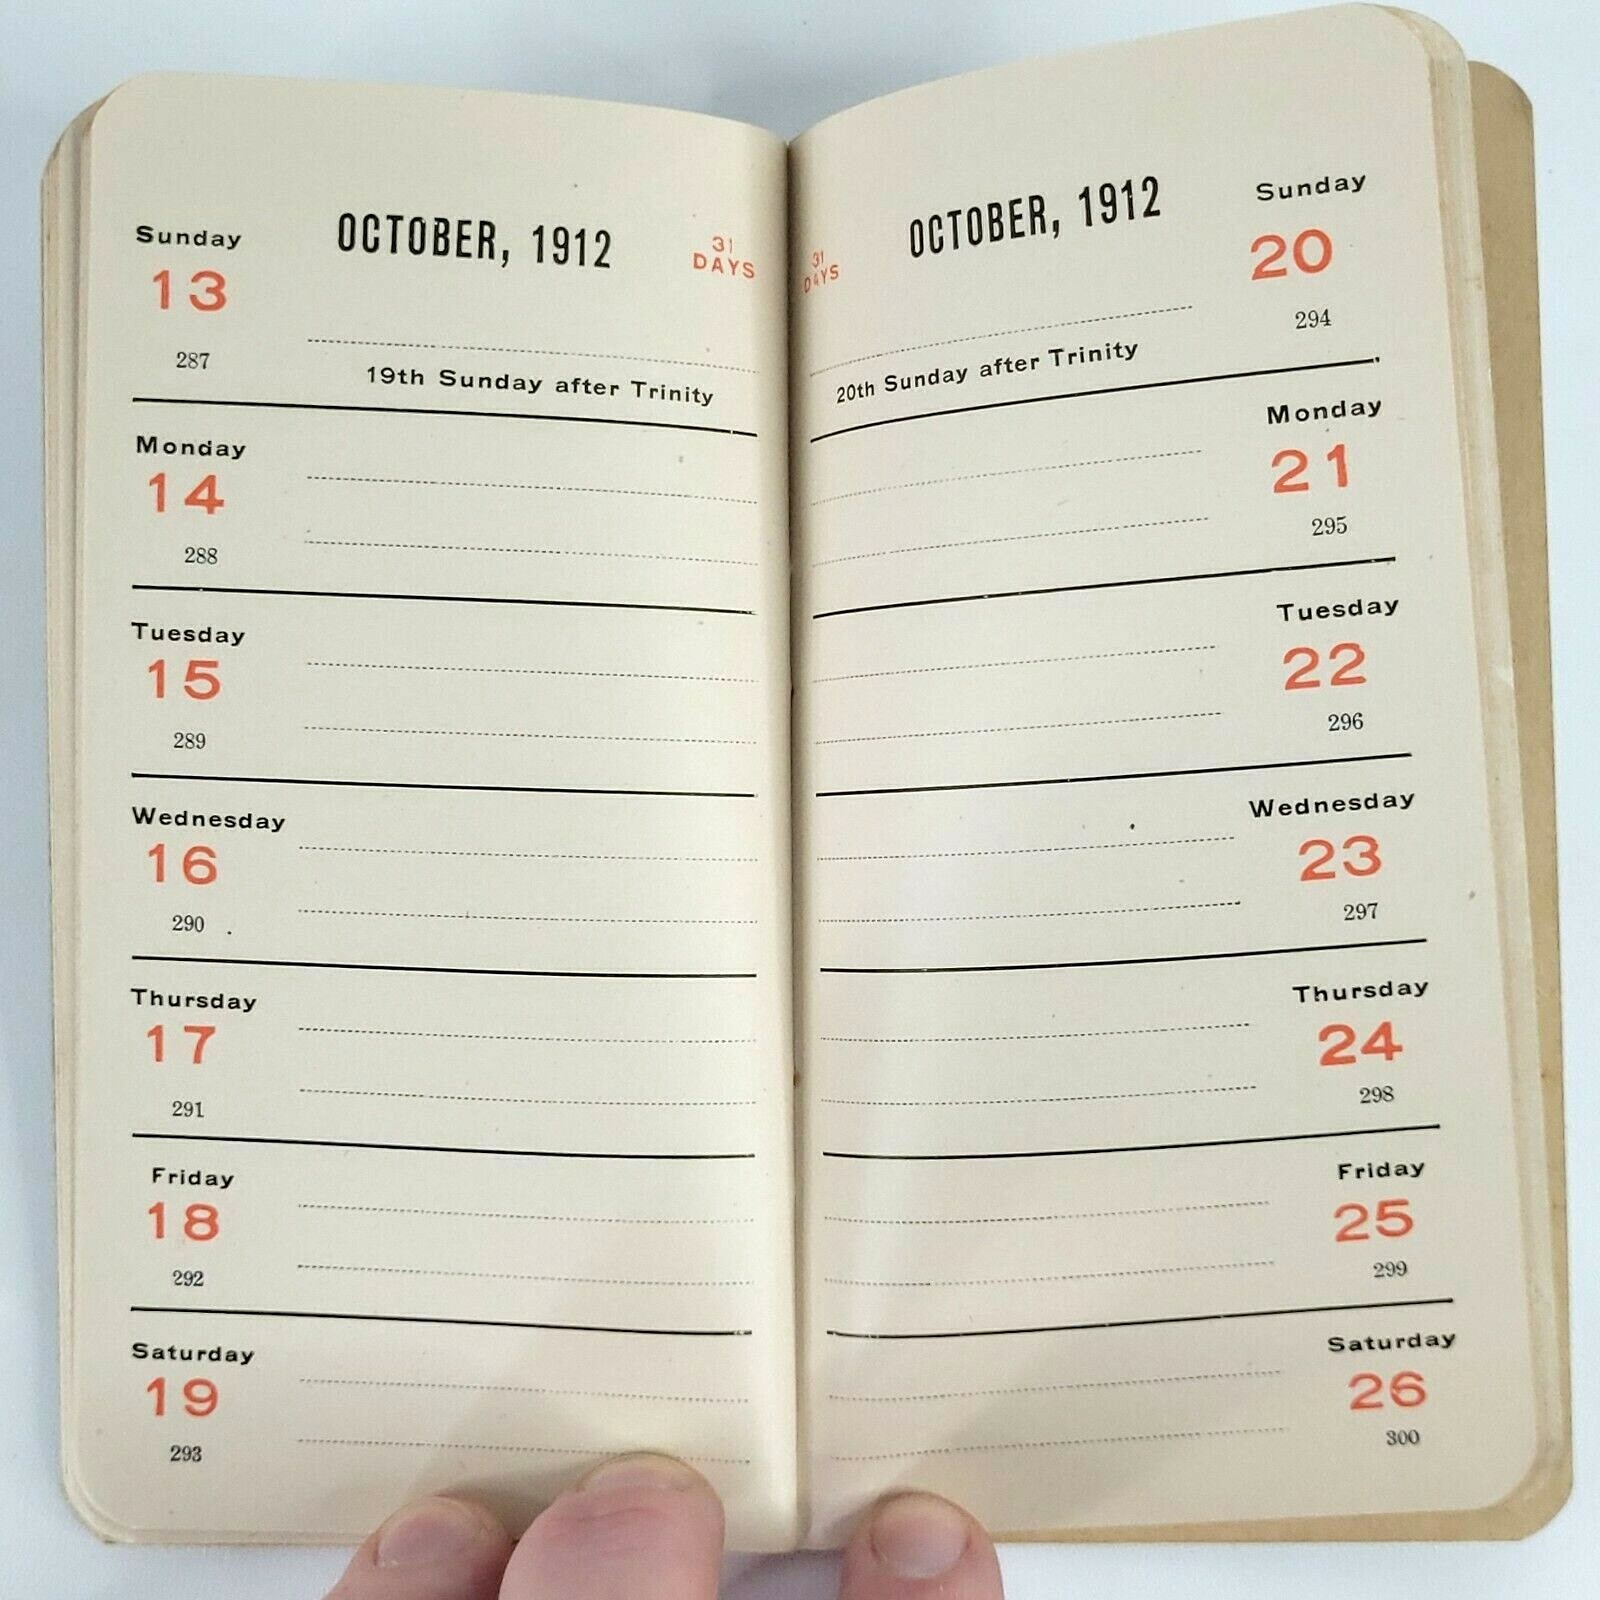 Sunday OCTOBER, 1912 31
DAYS
13
287
19th Sunday after Trinity
Monday
14
288
Tuesday
15
289
Wednesday
16
290
Thursday
17
291
Friday
18
292
Saturday
19
293
31
DAYS
OCTOBER, 1912 Sunday
20
294
20th Sunday after Trinity
Monday
21
295
Tuesday
22
296
Wednesday
23
297
Thursday
24
298
Friday
25
299
Saturday
26
300